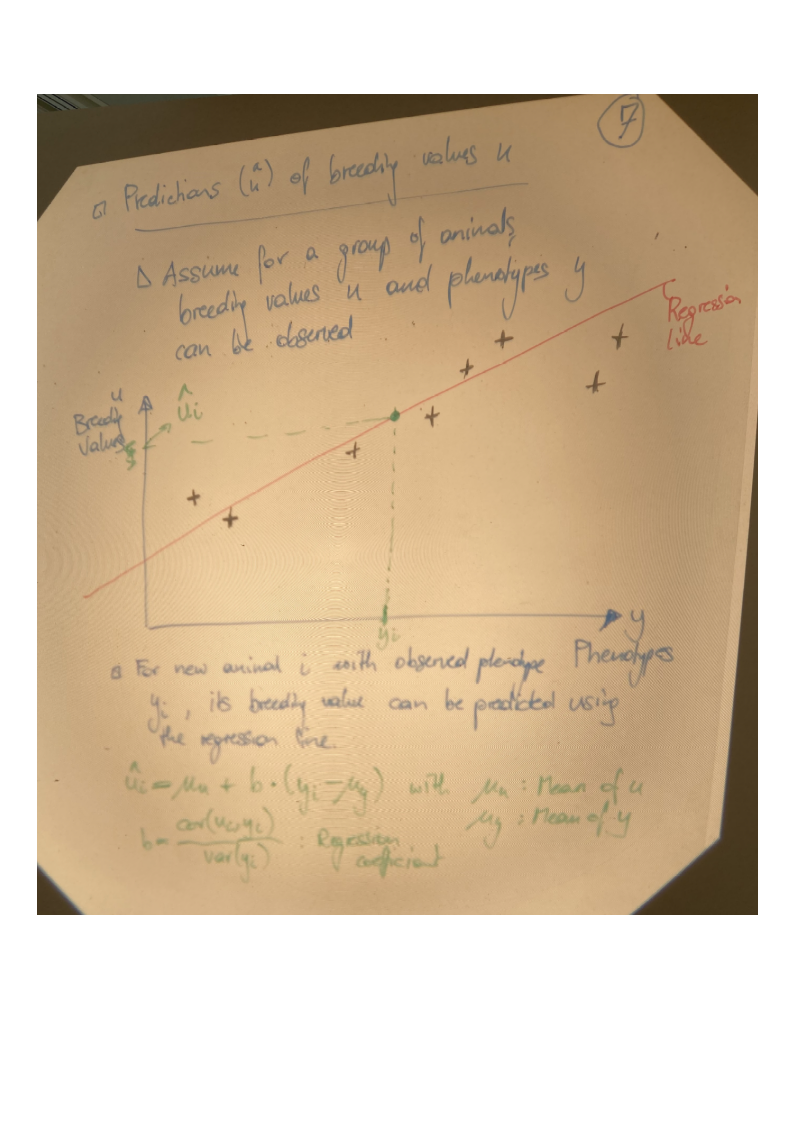 7
Predictions (û) of breeding values u
Assume for a group of animals,
breeding values u and phenotypes y
can be observed
Regression
line
u
Breeding
Values
ûi
yi
y
Phenotypes
For new animal i with observed phenotype
yi, its breeding value can be predicted using
the regression line.
ûi = μu + b · (yi - μy) with μu : Mean of u
μy : Mean of y
b = cov(ui, yi) / var(yi) : Regression
coefficient